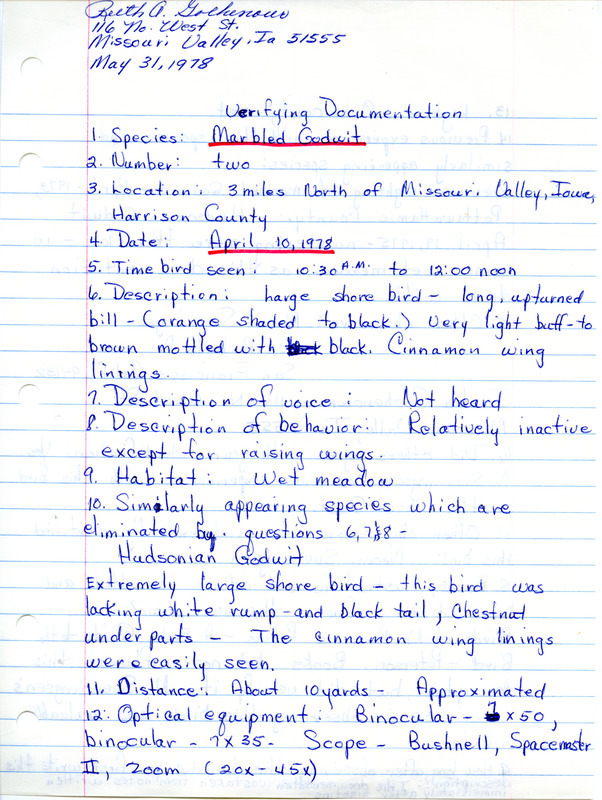 Ruth A.
116 No. West St.
Missouri Valley, Ia 51555
May 31, 1978
Verifying Documentation
1. Species: Marbled Godwit
2. Number: two
3. Location: 3 miles North of Missouri Valley, Iowa,
Harrison County
4. Date: April 10, 1978
5. Time bird seen: 10:30 A.M. to 12:00 noon
6. Description: Large shore bird - long, upturned
bill - (orange shaded to black.) Very light buff - to
brown mottled with black. Cinnamon wing
linings.
7. Description of voice: Not heard
8. Description of behavior: Relatively inactive
except for raising wings.
9. Habitat: Wet meadow
10. Similarly appearing species which are
eliminated by. questions 6, 7 & 8 -
Hudsonian Godwit
Extremely large shore bird - this bird was
lacking white rump - and black tail, Chestnut
under parts - The cinnamon wing linings
were easily seen.
11. Distance: About 10 yards - Approximated
12: Optical equipment: Binocular - 7 x 50,
binocular - 7 x 35 - Scope - Bushnell, Spacemaster
II, zoom (20x - 45x)